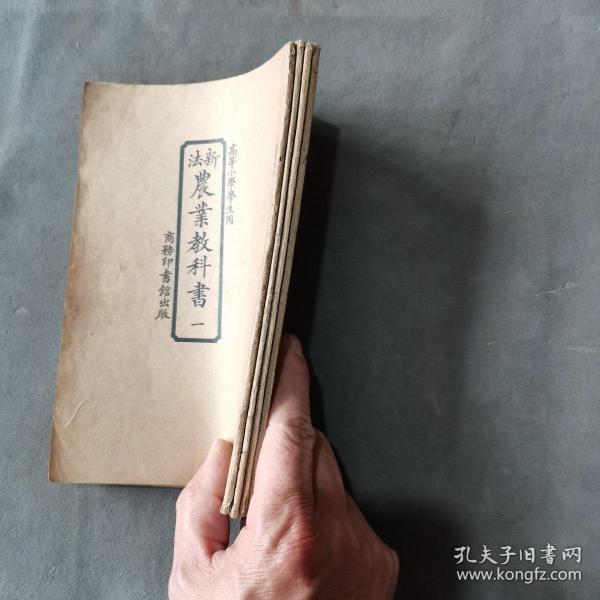 高等小學學生用
新法
農業教科書 一
商務印書館出版
孔夫子旧书网
www.kongfz.com